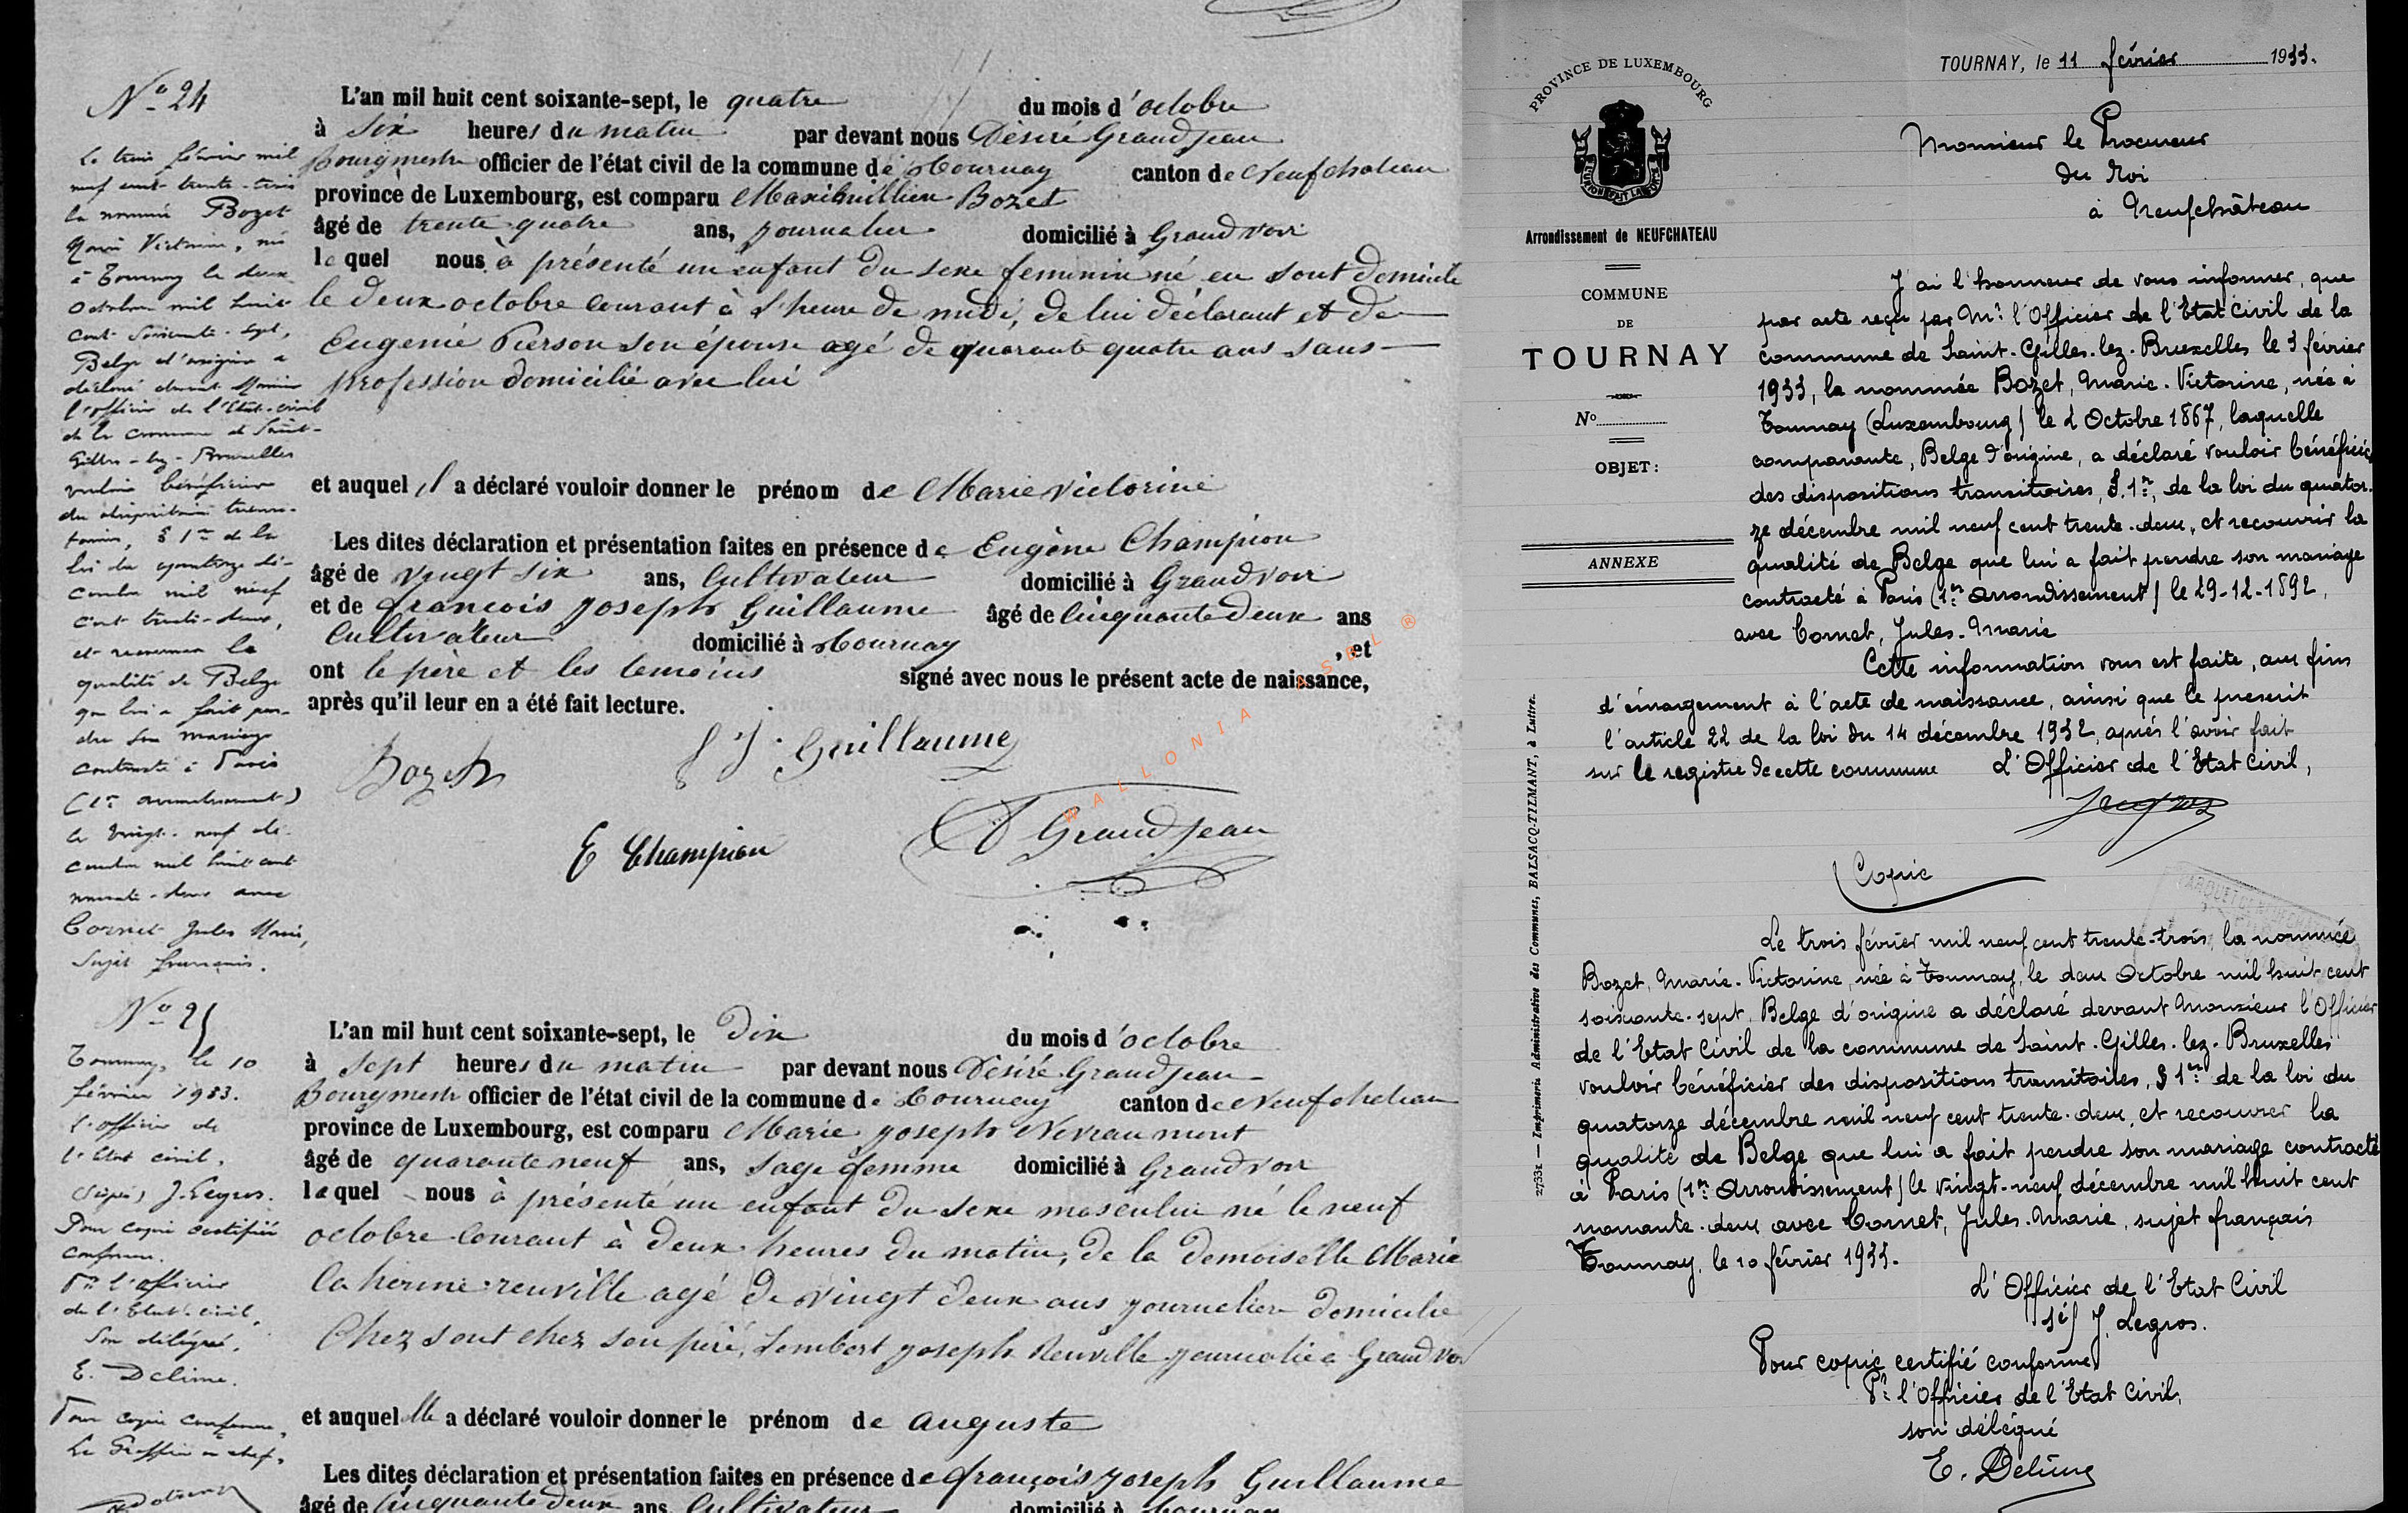 N° 24
L'an mil huit cent soixante-sept, le quatre du mois d'octobre
à six heures du matin par devant nous Désiré Grandjean
Bourgmestre officier de l'état civil de la commune de Tournay canton de Neufchateau
province de Luxembourg, est comparu Maximillien Bozet
âgé de trente quatre ans, journalier domicilié à Grandvoir
lequel nous à présenté un enfant du sexe feminin né en sont domicile
le deux octobre courant à l'heure de midi, de lui déclarant et de
Eugenie Pierson son épouse agé de quarante quatre ans sans
profession domicilié avec lui
et auquel il a déclaré vouloir donner le prénom de Marie Victorine
Les dites déclaration et présentation faites en présence de Eugène Champion
âgé de vingt six ans, Cultivateur domicilié à Grandvoir
et de françois joseph Guillaume âgé de cinquante deux ans
Cultivateur domicilié à Tournay , et
ont le père et les temoins signé avec nous le présent acte de naissance,
après qu'il leur en a été fait lecture.
Bozet
f J. Guillaume
E Champion
D Grandjean
WALLONIA ASBL ®
Le trois février mil
neuf cent trente-trois
la nommée Bozet
Marie Victorine, née
à Tournay le deux
Octobre mil huit
cent soixante-sept,
Belge d'origine a
déclaré devant Monsieur
l'officier de l'Etat-civil
de la commune de Saint-
Gilles-lez-Bruxelles
vouloir bénéficier
des dispositions transi-
toires, § 1er de la
loi du quatorze dé-
cembre mil neuf
cent trente-deux,
et recouvrer la
qualité de Belge
que lui a fait per-
dre son mariage
contracté à Paris
(1er arrondissement)
le vingt-neuf dé-
cembre mil huit cent
nonante-deux avec
Cornet Jules Marie,
sujet français.
Tournay, le 10
février 1933.
L'officier de
l'Etat civil,
(signé) J. Legros.
Pour copie certifiée
conforme.
Pr l'officier
de l'Etat-civil,
Son délégué,
E. Delime.
Pour copie conforme,
Le Greffier en chef,
N° 25
L'an mil huit cent soixante-sept, le Dix du mois d'octobre
à sept heures du matin par devant nous Désiré Grandjean
Bourgmestre officier de l'état civil de la commune de Tournay canton de Neufchateau
province de Luxembourg, est comparu Marie joseph Nevraumont
âgé de quaranteneuf ans, sage femme domicilié à Grandvoir
laquel nous à présenté un enfant du sexe masculin né le neuf
octobre courant à deux heures du matin, de la demoiselle Marie
Catherine reuville agé de vingt deux ans journaliere domicilie
Chez sont chez son père, Lambert joseph Reuville journalie a Grandvoir
et auquel elle a déclaré vouloir donner le prénom de auguste
Les dites déclaration et présentation faites en présence de françois joseph Guillaume
âgé de Cinquante deux ans, Cultivateur domicilié à Tournay
PROVINCE DE LUXEMBOURG
Arrondissement de NEUFCHATEAU
COMMUNE
DE
TOURNAY
N°
OBJET:
ANNEXE
2733x — Imprimerie Administrative des Communes, BALSACQ-TILMANT, à Luttre.
TOURNAY, le 11 février 1933.
Monsieur le Procureur
du Roi
à Neufchâteau
J'ai l'honneur de vous informer, que
par acte reçu par Mr l'Officier de l'Etat Civil de la
commune de Saint-Gilles-lez-Bruxelles le 3 février
1933, la nommée Bozet, Marie-Victorine, née à
Tournay (Luxembourg) le 2 Octobre 1867, laquelle
comparante, Belge d'origine, a déclaré vouloir bénéficier
des dispositions transitoires, §. 1er, de la loi du quator-
ze décembre mil neuf cent trente-deux, et recouvrir la
qualité de Belge que lui a fait perdre son mariage
contracté à Paris (1er Arrondissement) le 29-12-1892,
avec Cornet, Jules-Marie
Cette information vous est faite, aux fins
d'émargement à l'acte de naissance, ainsi que le prescrit
l'article 22 de la loi du 14 décembre 1932, après l'avoir fait
sur le registre de cette commune L'Officier de l'Etat Civil,
Copie
PARQUET DE NEUFCHATEAU
Le trois février mil neuf cent trente-trois, la nommée
Bozet, Marie-Victorine, née à Tournay, le deux Octobre mil huit cent
soixante-sept, Belge d'origine a déclaré devant Monsieur l'Officier
de l'Etat Civil de la commune de Saint-Gilles-lez-Bruxelles
vouloir bénéficier des dispositions transitoires, § 1er de la loi du
quatorze décembre mil neuf cent trente-deux, et recouvrer la
qualité de Belge que lui a fait perdre son mariage contracté
à Paris (1er Arrondissement) le vingt-neuf décembre mil huit cent
nonante-deux avec Cornet, Jules-Marie, sujet français
Tournay, le 10 février 1933.
L'Officier de l'Etat Civil
(sé) J. Legros.
Pour copie certifié conforme
Pr l'Officier de l'Etat Civil,
son délégué
E. Delime